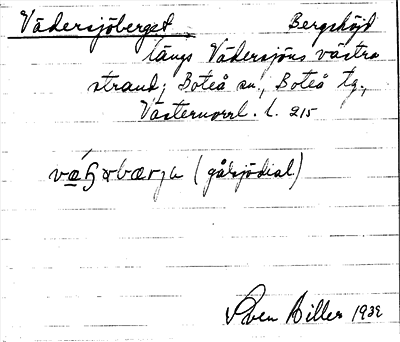 Vädersjöberget, Bergshöjd
längs Vädersjöns västra
strand; Boteå sn., Boteå tg.,
Västernorrl. l. 215
(gålsjödial.)
Sven Hiller 1932